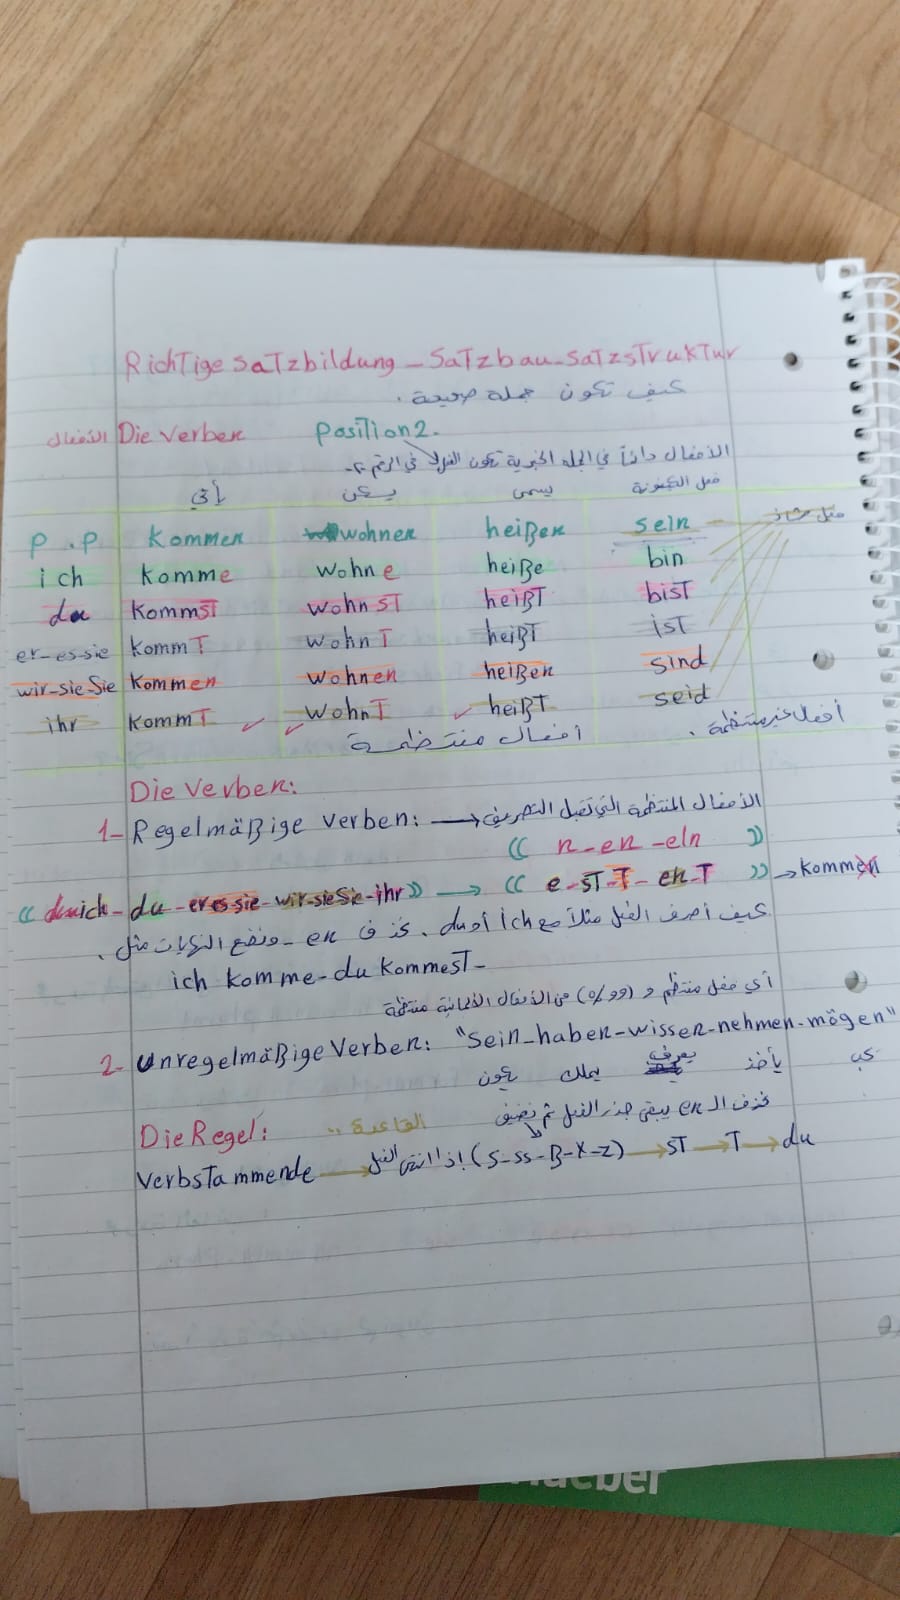 Richtige Satzbildung - Satzbau - Satzstruktur
كيف تكون جملة صحيحة.
الأفعال Die Verben Position 2.
الأفعال دائماً في الجملة الخبرية تكون الفعل في الرقم 2.
يأتي يسكن يسمى فعل الكينونة
P.P kommen wohnen heißen sein فعل شاذ
ich komme wohne heiße bin
du kommst wohnst heißt bist
er-es-sie kommt wohnt heißt ist
wir-sie-Sie kommen wohnen heißen sind
ihr kommt wohnt heißt seid
أفعال منتظمة أفعال غير منتظمة.
Die Verben:
1- Regelmäßige Verben: → الأفعال المنتظمة التي تقبل التصريف
« n-en-eln »
« ich-du-er es sie-wir-sie Sie-ihr » → « e-st-t-en-t » → kommen
كيف أصرف الفعل مثلاً مع ich أو du. نحذف en - ونضع النهايات مثل.
ich komme-du kommest-
أي فعل منتظم و (99%) من الأفعال الألمانية منتظمة
2- Unregelmäßige Verben: "Sein-haben-wissen-nehmen-mögen"
يكون يملك يعرف يأخذ يحب
نحذف الـ en يبقى جذر الفعل ثم نضيف
Die Regel: القاعدة..
Verbstammende → إذا انتهى الفعل (s-ss-ß-x-z) → st → t → du
Hueber